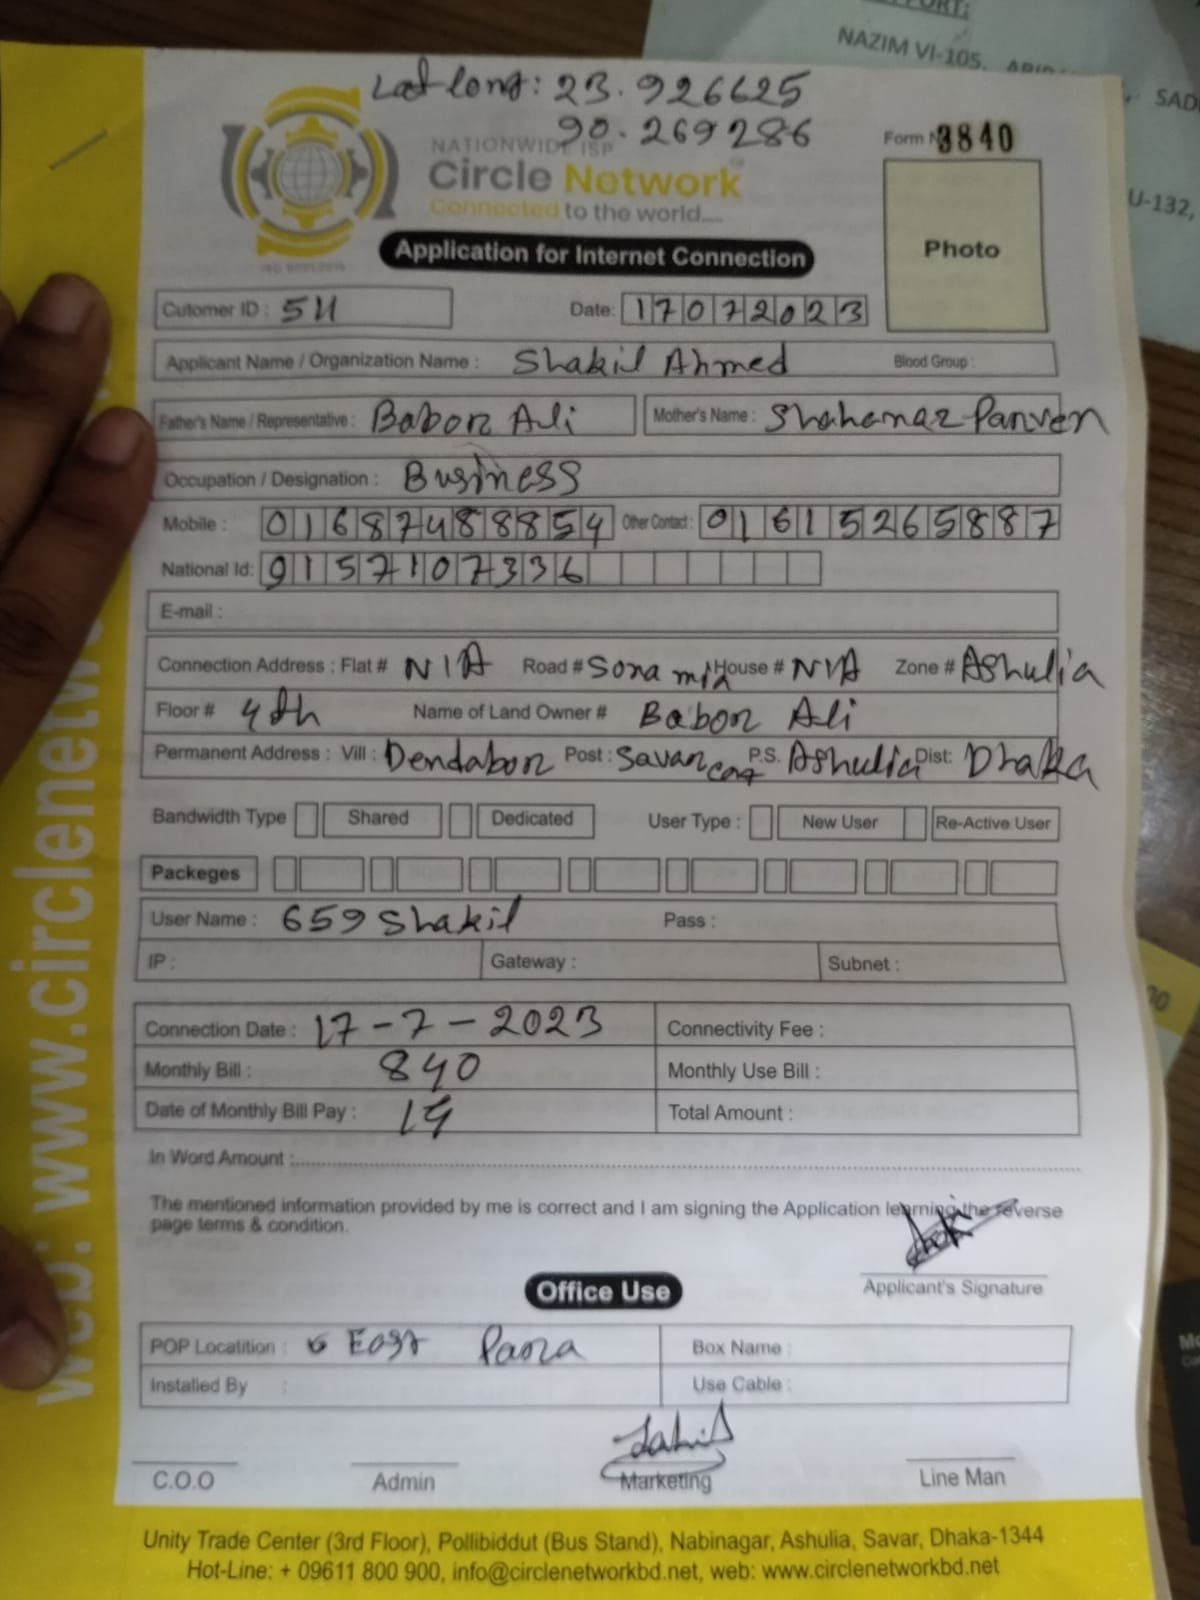 PORT:
NAZIM VI-105,
SAD
U-132,
Lat long: 23.926625
90.269286
Form N 3840
NATIONWIDE ISP
Circle Network
Connected to the world....
Photo
Application for Internet Connection
Cutomer ID : 511
Date: 17072023
Applicant Name / Organization Name : Shakil Ahmed Blood Group :
Father's Name / Representative : Babor Ali Mother's Name : Shahanaz Parven
Occupation / Designation : Business
Mobile : 01687488854 Other Contact : 01615265887
National Id: 9157107336
E-mail :
Connection Address : Flat # N/A Road # Sona House # N/A Zone # Ashulia
Floor # 4th Name of Land Owner # Babor Ali
Permanent Address : Vill : Dendabor Post : Savar P.S. Ashulia Dist: Dhaka
Bandwidth Type Shared Dedicated User Type : New User Re-Active User
Packeges
User Name : 659 Shakil Pass :
IP : Gateway : Subnet :
Connection Date : 17-7-2023 Connectivity Fee :
Monthly Bill : 840 Monthly Use Bill :
Date of Monthly Bill Pay : Total Amount :
In Word Amount :
The mentioned information provided by me is correct and I am signing the Application learning the reverse
page terms & condition.
Applicant's Signature
Office Use
POP Locatition : East Para Box Name :
Installed By : Use Cable :
C.O.O Admin Marketing Line Man
Unity Trade Center (3rd Floor), Pollibiddut (Bus Stand), Nabinagar, Ashulia, Savar, Dhaka-1344
Hot-Line: + 09611 800 900, info@circlenetworkbd.net, web: www.circlenetworkbd.net
web: www.circlenetwo